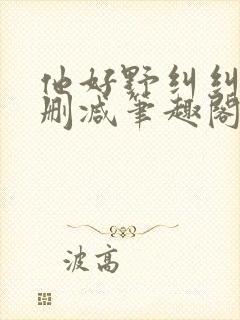 他好野纠纠
删减笔趣阁
波高